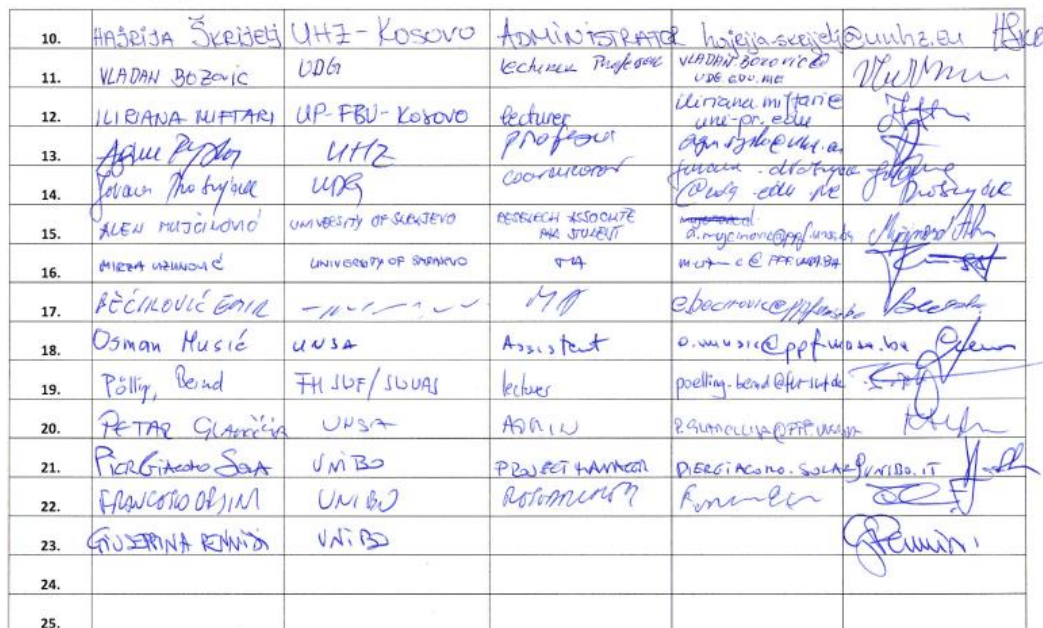 10. HAJRIJA ŠKRIJELJ UHZ-KOSOVO ADMINISTRATOR hajrija.skrijelj@unhz.eu
11. VLADAN BOZOVIC UDG lecturer Professor VLADAN.BOZOVIC@
UDG.EDU.ME
12. ILIRIANA MIFTARI UP-FBV-Kosovo lecturer iliriana.miftari@
uni-pr.edu
13. UHZ professor
14. Jovana Drobnjak UDG coordinator
@udg.edu.me
15. ALEN MUJČINOVIĆ UNIVERSITY OF SARAJEVO RESEARCH ASSOCIATE
PhD STUDENT
a.mujcinovic@ppf.unsa.ba
16. MIRZA UZUNOVIĆ UNIVERSITY OF SARAJEVO TA
17. BEĆIROVIĆ EMIR MA e.becirovic@ppf.unsa.ba
18. Osman Musić UNSA Assistent o.music@ppf.unsa.ba
19. Pölling, Bernd FH SWF/SWUAS lecturer poelling.bernd@fh-swf.de
20. PETAR UNSA ADMIN
21. PIERGIACOMO SOLA UNIBO PROJECT MANAGER PIERGIACOMO.SOLA@UNIBO.IT
22. FRANCESCO ORSINI UNIBO
23. GIUSEPPINA PENNISI UNIBO GPennisi
24.
25.